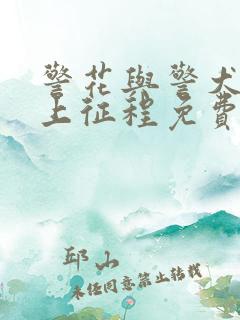 警花與警犬
上征程免費
邱山
未任同意禁止转载